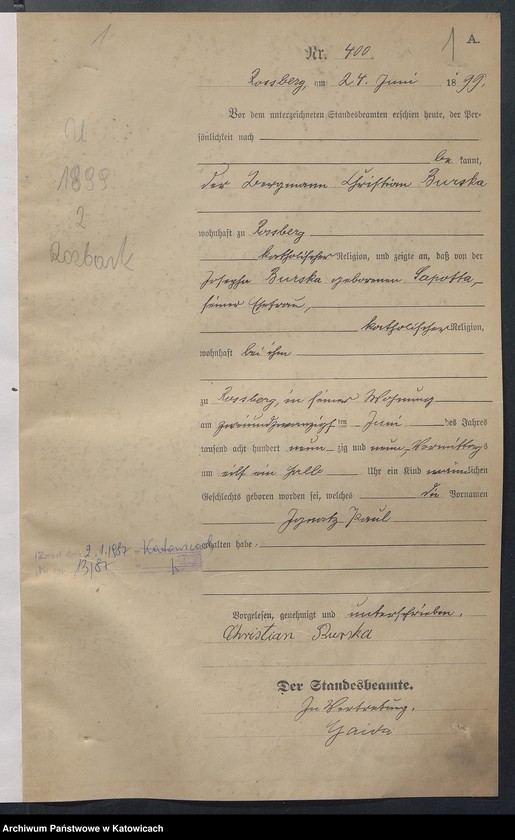 1
1 A.
Nr. 400
Rossberg, am 24. Juni 1899.
Vor dem unterzeichneten Standesbeamten erschien heute, der Per-
sönlichkeit nach
be kannt,
der Bergmann Christian Burska
wohnhaft zu Rossberg
katholischer Religion, und zeigte an, daß von der
Josepha Burska geborenen Sapotta,
seiner Ehefrau,
katholischer Religion,
wohnhaft bei ihm
zu Rossberg, in seiner Wohnung
am zweiundzwanzigsten Juni des Jahres
tausend acht hundert neun zig und neun, Vormittags
um elf ein halb Uhr ein Kind männlichen
Geschlechts geboren worden sei, welches die Vornamen
Ignatz Paul
erhalten habe.
Vorgelesen, genehmigt und unterschrieben.
Christian Burska
Der Standesbeamte.
In Vertretung.
Gaida
U
1899
2
Rozbark
2.1.1987 - Katowicach
13/87
Archiwum Państwowe w Katowicach